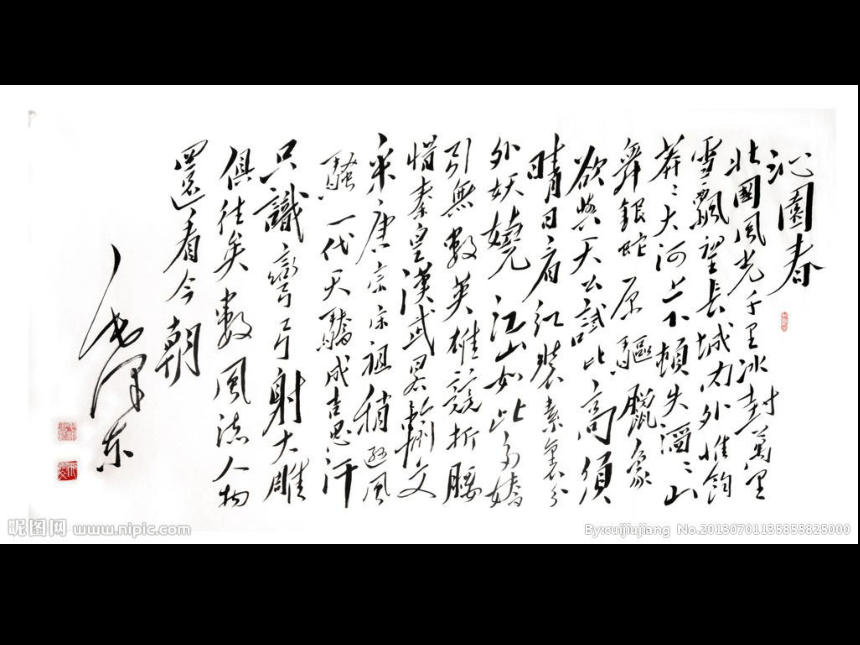 沁園春
北國風光千里冰封萬里
雪飄望長城内外惟餘
莽〻大河上下頓失滔〻山
舞銀蛇原驅臘象
欲與天公試比高須
晴日看紅裝素裹分
外妖嬈江山如此多嬌
引無數英雄競折腰
惜秦皇漢武略輸文
采唐宗宋祖稍遜風
騷一代天驕成吉思汗
只識彎弓射大雕
俱往矣數風流人物
還看今朝
毛澤东
昵图网 www.nipic.com
By:cuijiujiang No.20130701135855825000